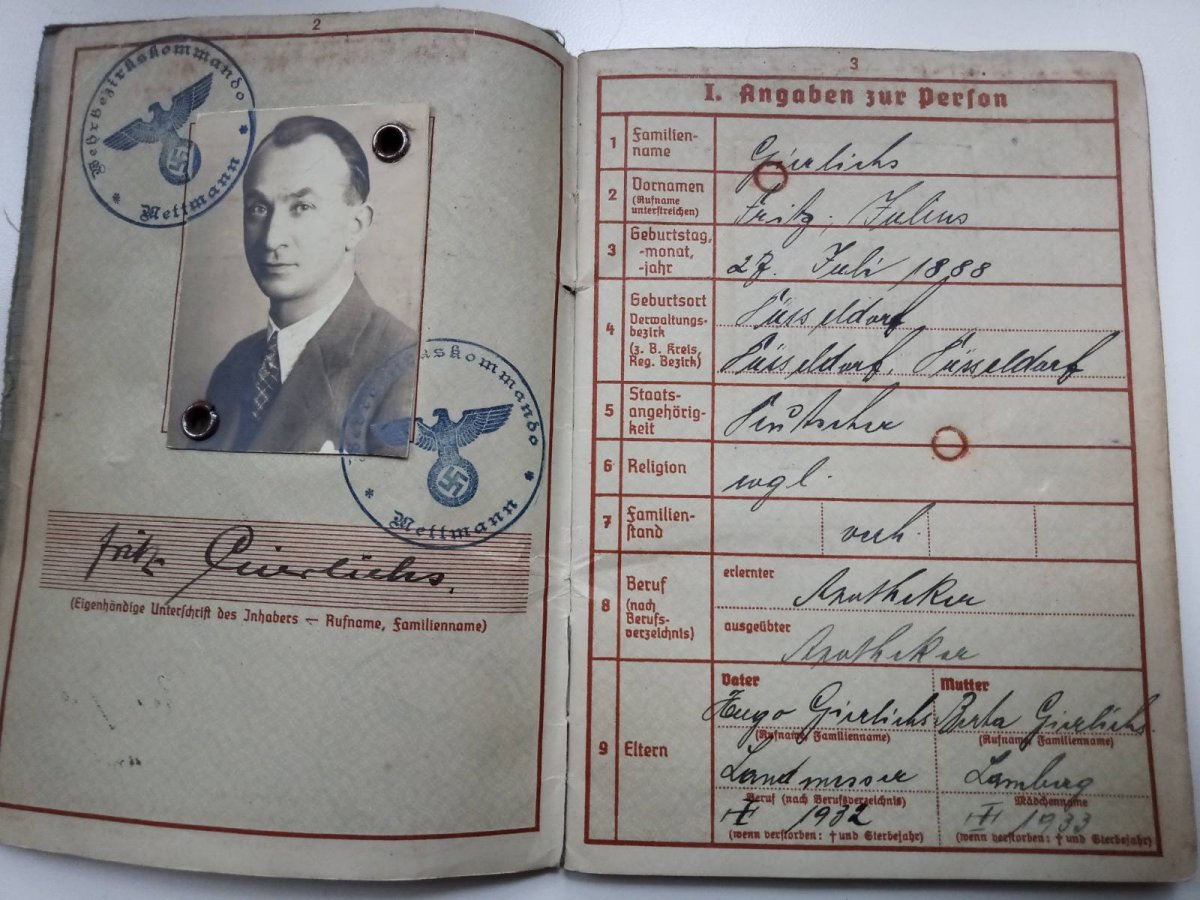 2
Wehrbezirkskommando
Mettmann
Mettmann
Fritz Gierlichs.
(Eigenhändige Unterschrift des Inhabers — Rufname, Familienname)
3
I. Angaben zur Person
1 Familien-
name
Gierlichs
2 Vornamen
(Rufname
unterstreichen)
Fritz, Julius
3 Geburtstag,
-monat,
-jahr
27. Juli 1888
4 Geburtsort
Verwaltungs-
bezirk
(z. B. Kreis,
Reg. Bezirk)
Düsseldorf
Düsseldorf, Düsseldorf
5 Staats-
angehörig-
keit
Deutscher
6 Religion
evgl.
7 Familien-
stand
verh.
8 Beruf
(nach
Berufs-
verzeichnis)
erlernter
Apotheker
ausgeübter
Apotheker
9 Eltern
Vater
Hugo Gierlichs
(Rufname, Familienname)
Landmesser
Beruf (nach Berufsverzeichnis)
† 1932
(wenn verstorben: † und Sterbejahr)
Mutter
Berta Gierlichs
(Rufname, Familienname)
Lamberg
Mädchenname
† 1933
(wenn verstorben: † und Sterbejahr)